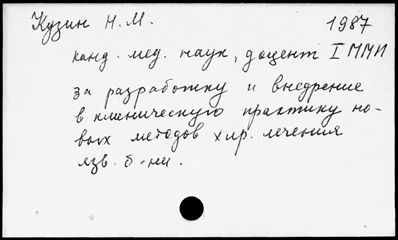 Кузин Н.М. 1987
канд. мед. наук, доцент I ММИ
за разработку и внедрение
в клиническую практику но-
вых методов хир. лечения
язв. б-ни.